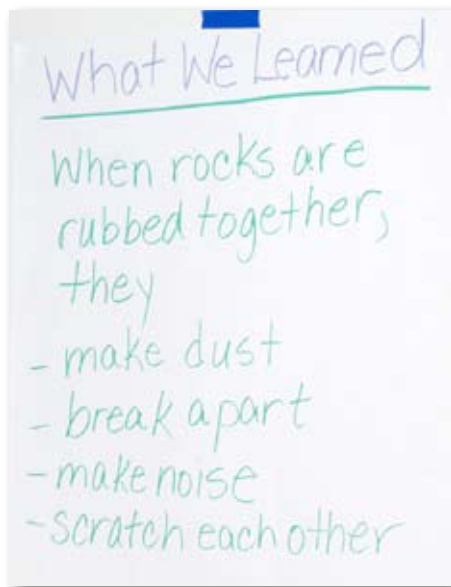 What We Learned
When rocks are
rubbed together,
they
- make dust
- break apart
- make noise
- scratch each other